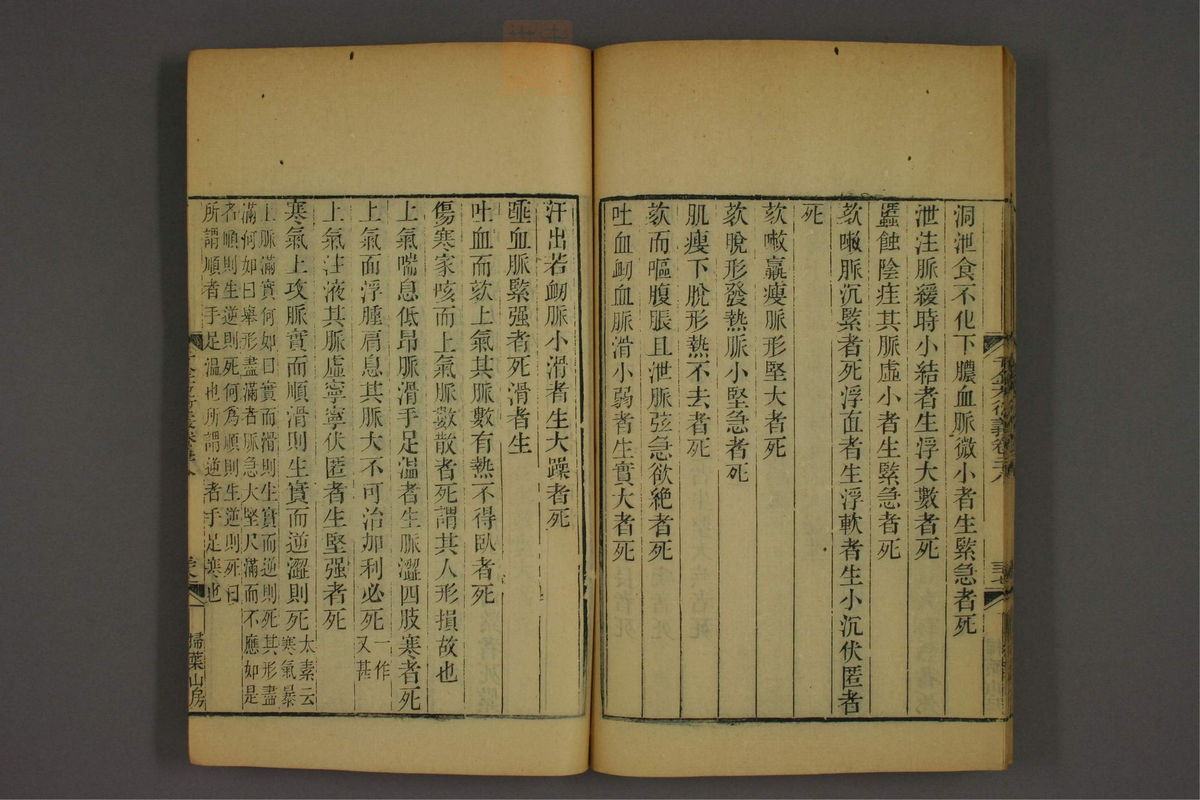 洞泄食不化下膿血脈微小者生緊急者死
泄注脈緩時小結者生浮大數者死
䘌蝕陰疰其脈虛小者生緊急者死
欬嗽脈沉緊者死浮直者生浮軟者生小沉伏匿者
死
欬嗽羸瘦脈形堅大者死
欬脫形發熱脈小堅急者死
肌瘦下脫形熱不去者死
欬而嘔腹脹且泄脈弦急欲絶者死
吐血衂血脈滑小弱者生實大者死
汗出若衂脈小滑者生大躁者死
唾血脈緊强者死滑者生
吐血而欬上氣其脈數有熱不得臥者死
傷寒家咳而上氣脈數散者死謂其人形損故也
上氣喘息低昂脈滑手足溫者生脈澀四肢寒者死
上氣面浮腫肩息其脈大不可治加利必死一作又甚
上氣注液其脈虛寧寧伏匿者生堅强者死
寒氣上攻脈實而順滑則生實而逆澀則死太素云寒氣暴
上脈滿實何如曰實而滑則生實而逆則死其形盡
滿何如曰舉形盡滿者脈急大堅尺滿而不應如是
者順則生逆則死何為順則生逆則死曰
所謂順者手足溫也所謂逆者手足寒也
掃葉山房